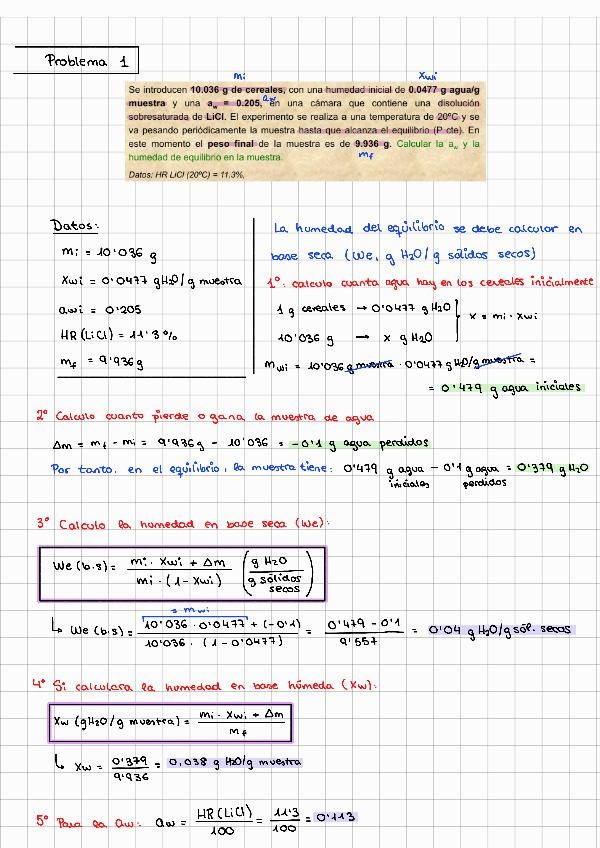 Problema 1
mi
xwi
Se introducen 10.036 g de cereales, con una humedad inicial de 0.0477 g agua/g
muestra y una aw = 0.205, en una cámara que contiene una disolución
aw
sobresaturada de LiCl. El experimento se realiza a una temperatura de 20ºC y se
va pesando periódicamente la muestra hasta que alcanza el equilibrio (P cte). En
este momento el peso final de la muestra es de 9.936 g. Calcular la aw y la
mf
humedad de equilibrio en la muestra.
Datos: HR LiCl (20ºC) = 11.3%.
Datos:
mi = 10'036 g
xwi = 0'0477 gH2O/g muestra
awi = 0'205
HR(LiCl) = 11'3%
mf = 9'936g
La humedad del equilibrio se debe calcular en
base seca (We, g H2O/g sólidos secos)
1º: calculo cuanta agua hay en los cereales inicialmente
1 g cereales → 0'0477 g H2O
10'036 g → x g H2O
x = mi · xwi
mwi = 10'036 g muestra · 0'0477 g H2O/g muestra =
= 0'479 g agua iniciales
2º Calculo cuanto pierde o gana la muestra de agua
Δm = mf - mi = 9'936g - 10'036 = -0'1 g agua perdidos
Por tanto, en el equilibrio, la muestra tiene: 0'479 g agua iniciales - 0'1 g agua perdidos = 0'379 g H2O
3º Calculo la humedad en base seca (We):
We (b.s) = mi · xwi + Δm / mi · (1 - xwi) (g H2O / g sólidos secos)
= mwi
↳ We (b.s) = 10'036 · 0'0477 + (-0'1) / 10'036 · (1 - 0'0477) = 0'479 - 0'1 / 9'557 = 0'04 g H2O/g sól. secos
4º Si calculara la humedad en base húmeda (Xw):
Xw (gH2O/g muestra) = mi · xwi + Δm / mf
↳ Xw = 0'379 / 9'936 = 0,038 g H2O/g muestra
5º Para la aw: aw = HR(LiCl) / 100 = 11'3 / 100 = 0'113